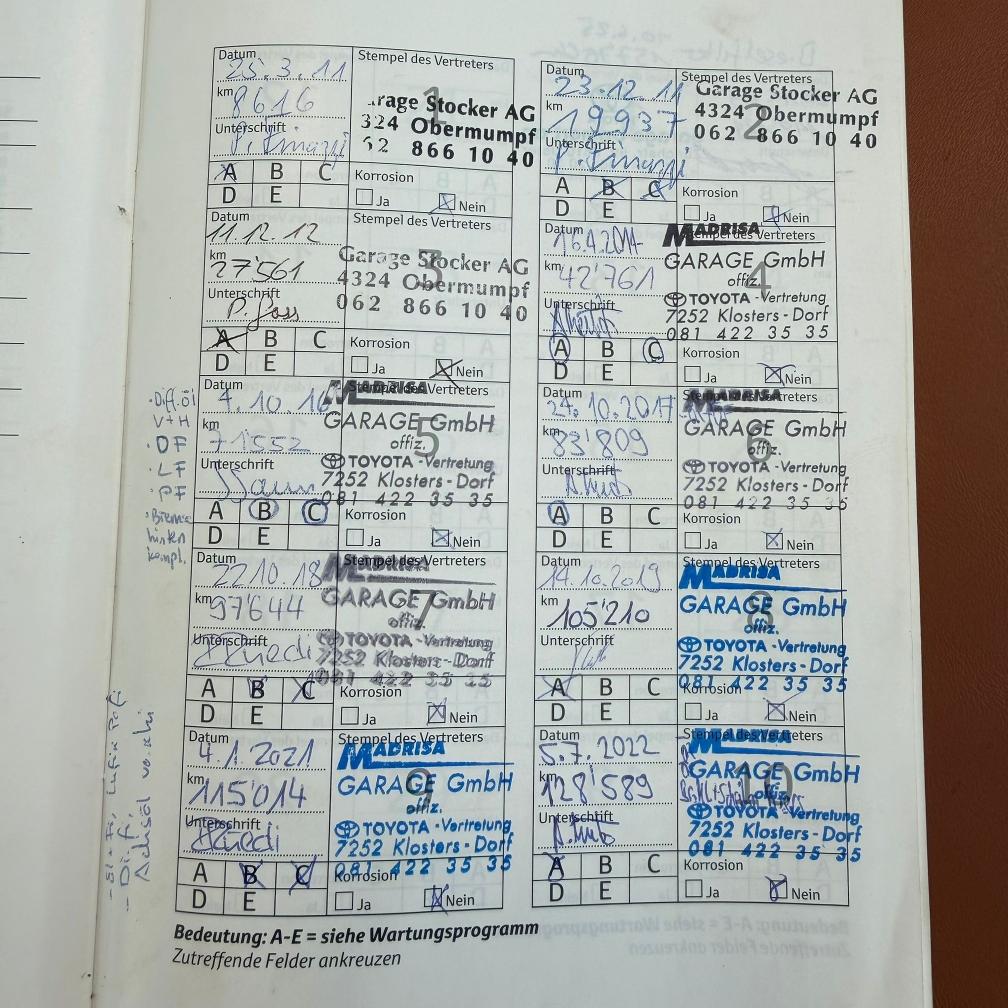 Datum
25.3.11
km
8616
Unterschrift
Stempel des Vertreters
1
arage Stocker AG
324 Obermumpf
62 866 10 40
A B C
D E
Korrosion
Ja Nein
Datum
23.12.11
km
19937
Unterschrift
Stempel des Vertreters
2
Garage Stocker AG
4324 Obermumpf
062 866 10 40
A B C
D E
Korrosion
Ja Nein
Datum
11.12.12
km
27'561
Unterschrift
Stempel des Vertreters
3
Garage Stocker AG
4324 Obermumpf
062 866 10 40
A B C
D E
Korrosion
Ja Nein
Datum
16.4.2014
km
42'761
Unterschrift
Stempel des Vertreters
4
MADRISA
GARAGE GmbH
offiz.
TOYOTA - Vertretung
7252 Klosters - Dorf
081 422 35 35
A B C
D E
Korrosion
Ja Nein
· Diff.öl
V+H
· DF
· LF
· PF
hinten
kompl.
Datum
4.10.16
km
71'552
Unterschrift
Stempel des Vertreters
5
MADRISA
GARAGE GmbH
offiz.
TOYOTA - Vertretung
7252 Klosters - Dorf
081 422 35 35
A B C
D E
Korrosion
Ja Nein
Datum
24.10.2017
km
83'809
Unterschrift
Stempel des Vertreters
6
MADRISA
GARAGE GmbH
offiz.
TOYOTA - Vertretung
7252 Klosters - Dorf
081 422 35 35
A B C
D E
Korrosion
Ja Nein
Datum
22.10.18
km
97'644
Unterschrift
Stempel des Vertreters
7
MADRISA
GARAGE GmbH
offiz.
TOYOTA - Vertretung
7252 Klosters - Dorf
081 422 35 35
A B C
D E
Korrosion
Ja Nein
Datum
14.10.2019
km
105'210
Unterschrift
Stempel des Vertreters
8
MADRISA
GARAGE GmbH
offiz.
TOYOTA - Vertretung
7252 Klosters - Dorf
081 422 35 35
A B C
D E
Korrosion
Ja Nein
Datum
4.1.2021
km
115'014
Unterschrift
Stempel des Vertreters
9
MADRISA
GARAGE GmbH
offiz.
TOYOTA - Vertretung
7252 Klosters - Dorf
081 422 35 35
A B C
D E
Korrosion
Ja Nein
Datum
5.7.2022
km
128'589
Unterschrift
Stempel des Vertreters
10
MADRISA
GARAGE GmbH
offiz.
TOYOTA - Vertretung
7252 Klosters - Dorf
081 422 35 35
A B C
D E
Korrosion
Ja Nein
Bedeutung: A-E = siehe Wartungsprogramm
Zutreffende Felder ankreuzen